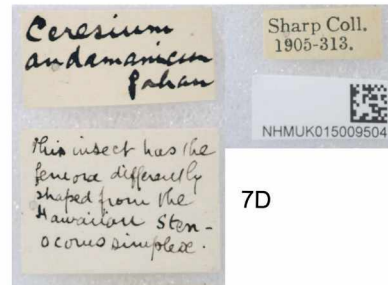 Ceresium
andamanicum
Gahan
Sharp Coll.
1905-313.
NHMUK015009504
This insect has the
femora differently
shaped from the
Hawaiian Sten-
ocorus simplex.
7D